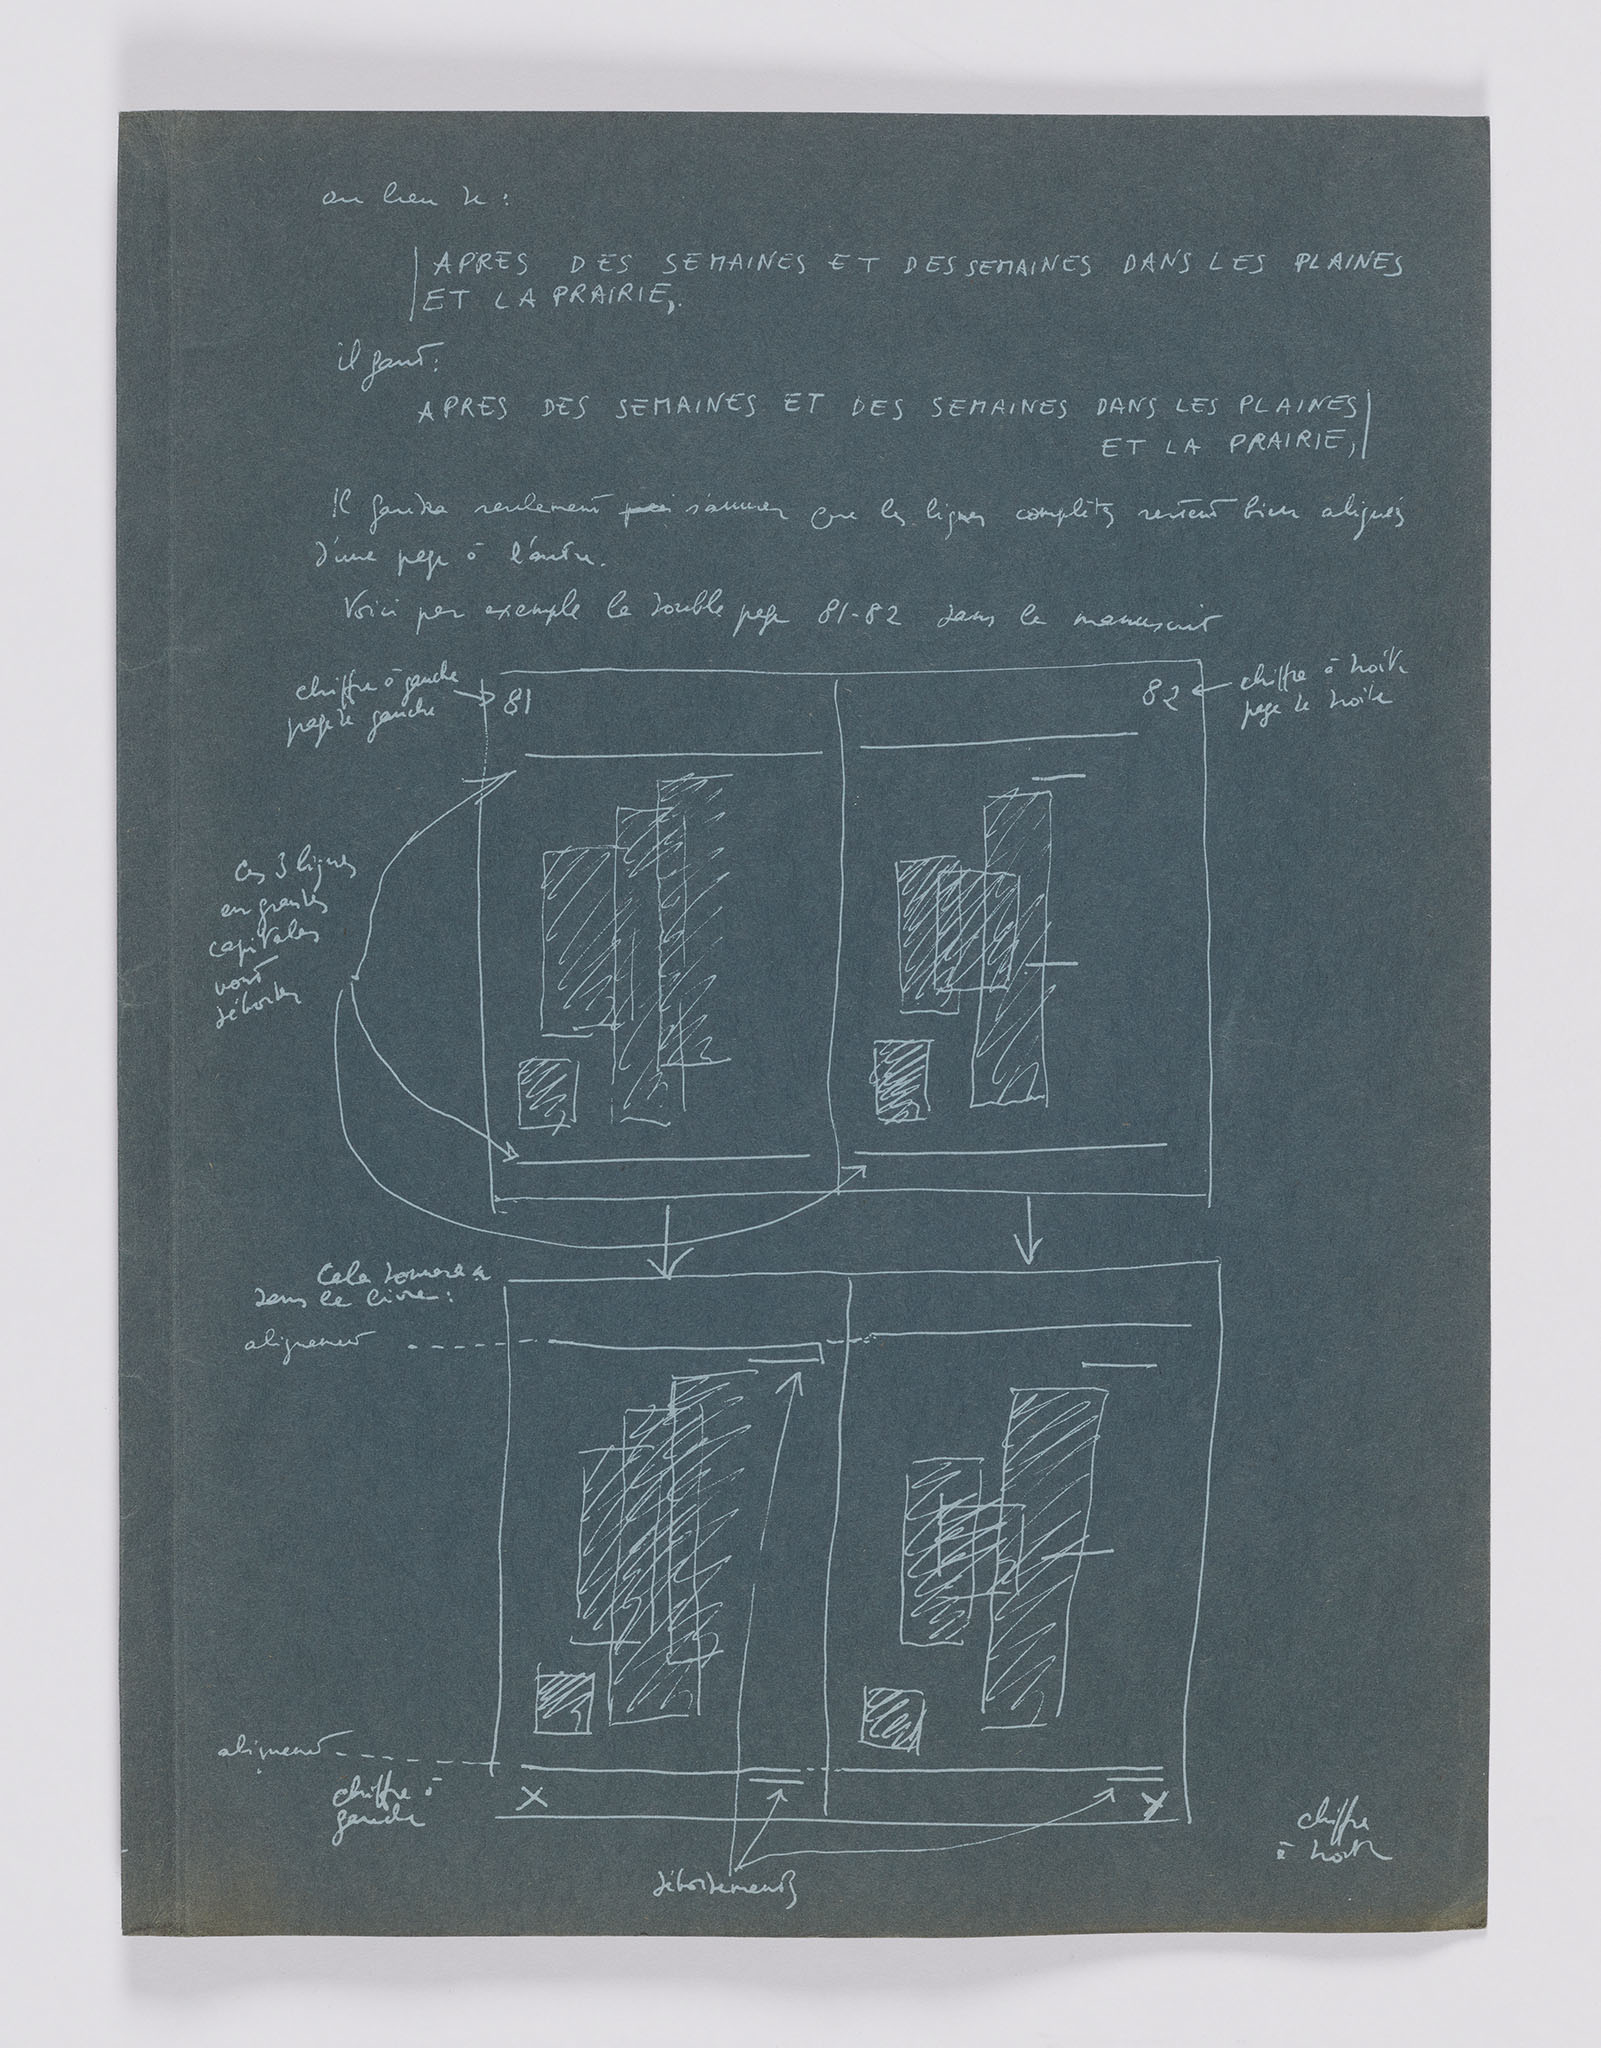 au lieu de :
APRES DES SEMAINES ET DES SEMAINES DANS LES PLAINES
ET LA PRAIRIE,
il faut :
APRES DES SEMAINES ET DES SEMAINES DANS LES PLAINES
ET LA PRAIRIE,
Il faudra seulement s'assurer que les lignes complètes restent bien alignés
d'une page à l'autre.
Voici par exemple la double page 81-82 dans le manuscrit
chiffre à gauche
page de gauche
81
82
chiffre à droite
page de droite
Ces 3 lignes
en grandes
capitales
vont
déborder
Cela donnera
dans le livre :
alignement
alignement
chiffre à
gauche
X
Y
chiffre
à droite
débordements